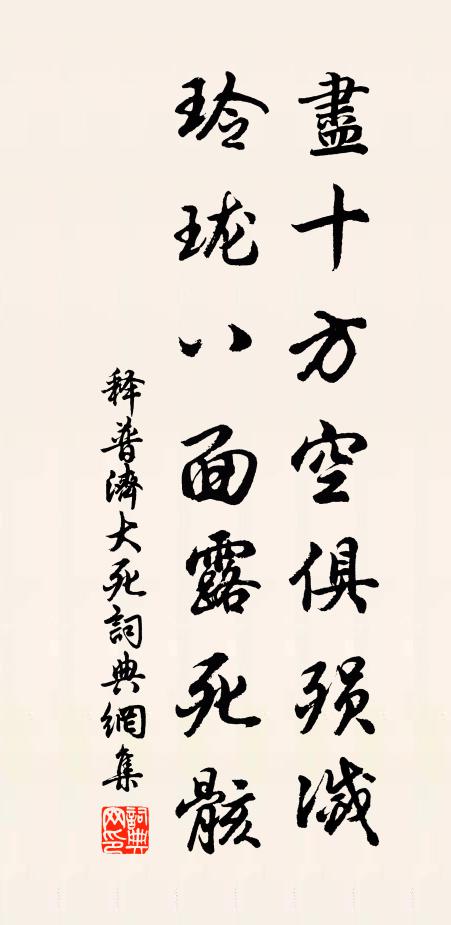 盡十方空俱殞滅
玲瓏八面露死骸
釋普濟大死詞典網集
詞典網印